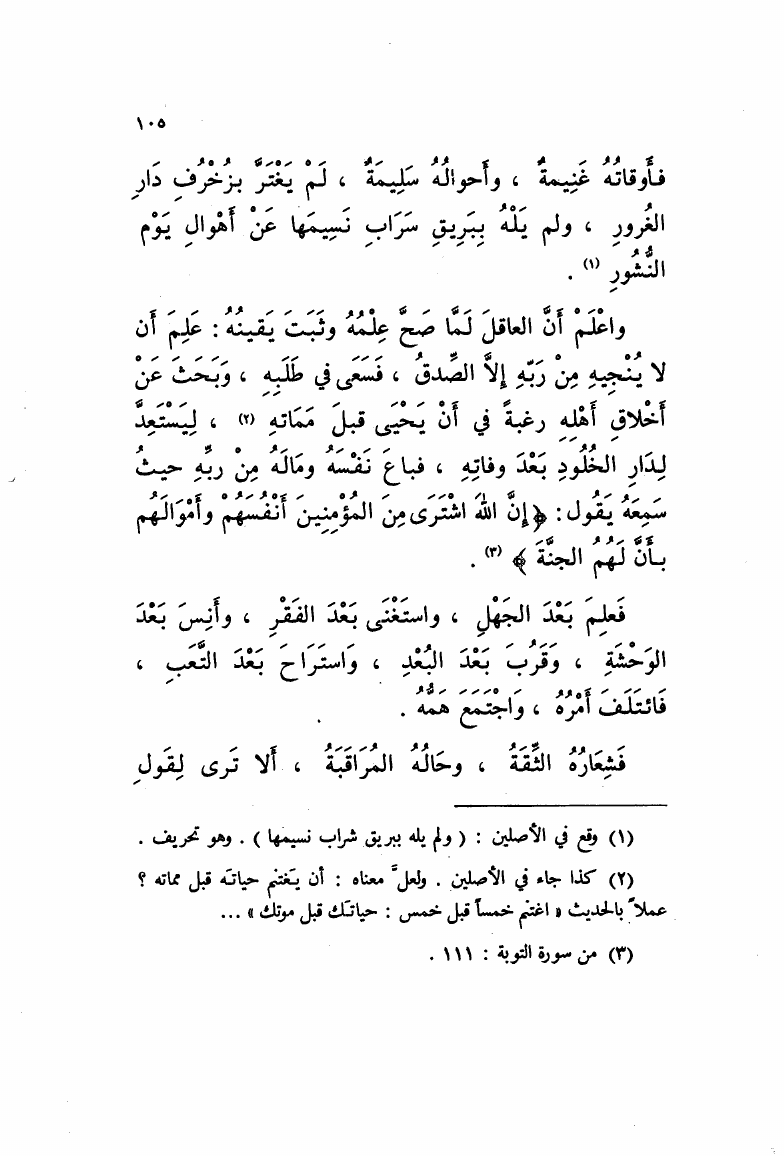 ١٠٥
فأَوقاتُهُ غَنِيمةٌ ، وأَحوالُهُ سَلِيمَةٌ ، لَمْ يَغْتَرَّ بزُخْرُفِ دَارِ
الغُرورِ ، ولم يَلْهُ بِبَرِيقِ سَرَابِ نَسِيمَها عَنْ أَهْوالِ يَوْمِ
النُّشُورِ (١) .
واعْلَمْ أَنَّ العاقلَ لَمَّا صَحَّ عِلْمُهُ وثَبَتَ يَقينُهُ : عَلِمَ أَن
لا يُنْجيهِ مِنْ رَبِّهِ إِلاَّ الصِّدقُ ، فَسَعَى في طَلَبِهِ ، وَبَحَثَ عَنْ
أَخْلاقِ أَهْلِهِ رغبةً في أَنْ يَحْيَى قبلَ مَمَاتهِ (٢) ، لِيَسْتَعِدَّ
لِدَارِ الخُلُودِ بَعْدَ وفاتِهِ ، فباعَ نَفْسَهُ ومَالَهُ مِنْ ربِّهِ حيثُ
سَمِعَهُ يَقُول : ﴿ إِنَّ اللهَ اشْتَرَى مِنَ المُؤْمِنِينَ أَنْفُسَهُمْ وأَمْوَالَهُم
بأَنَّ لَهُمُ الجنَّةَ ﴾ (٣) .
فَعلِمَ بَعْدَ الجَهْلِ ، واستَغْنَى بَعْدَ الفَقْرِ ، وأَنِسَ بَعْدَ
الوَحْشَةِ ، وَقَرُبَ بَعْدَ البُعْدِ ، وَاستَرَاحَ بَعْدَ التَّعَبِ ،
فَائتَلَفَ أَمْرُهُ ، وَاجْتَمَعَ هَمُّهُ .
فَشِعَارُهُ الثِّقَةُ ، وحَالُهُ المُرَاقَبَةُ ، أَلا تَرى لِقَولِ
(١) وقع في الأصلين : ( ولم يله ببريق شراب نسيمها ) . وهو تحريف .
(٢) كذا جاء في الأصلين . ولعلَّ معناه : أن يَغتنم حياتَه قبل مماته ؟
عملاً بالحديث « اغتنم خمساً قبل خمس : حياتَك قبل موتك » ...
(٣) من سورة التوبة : ١١١ .